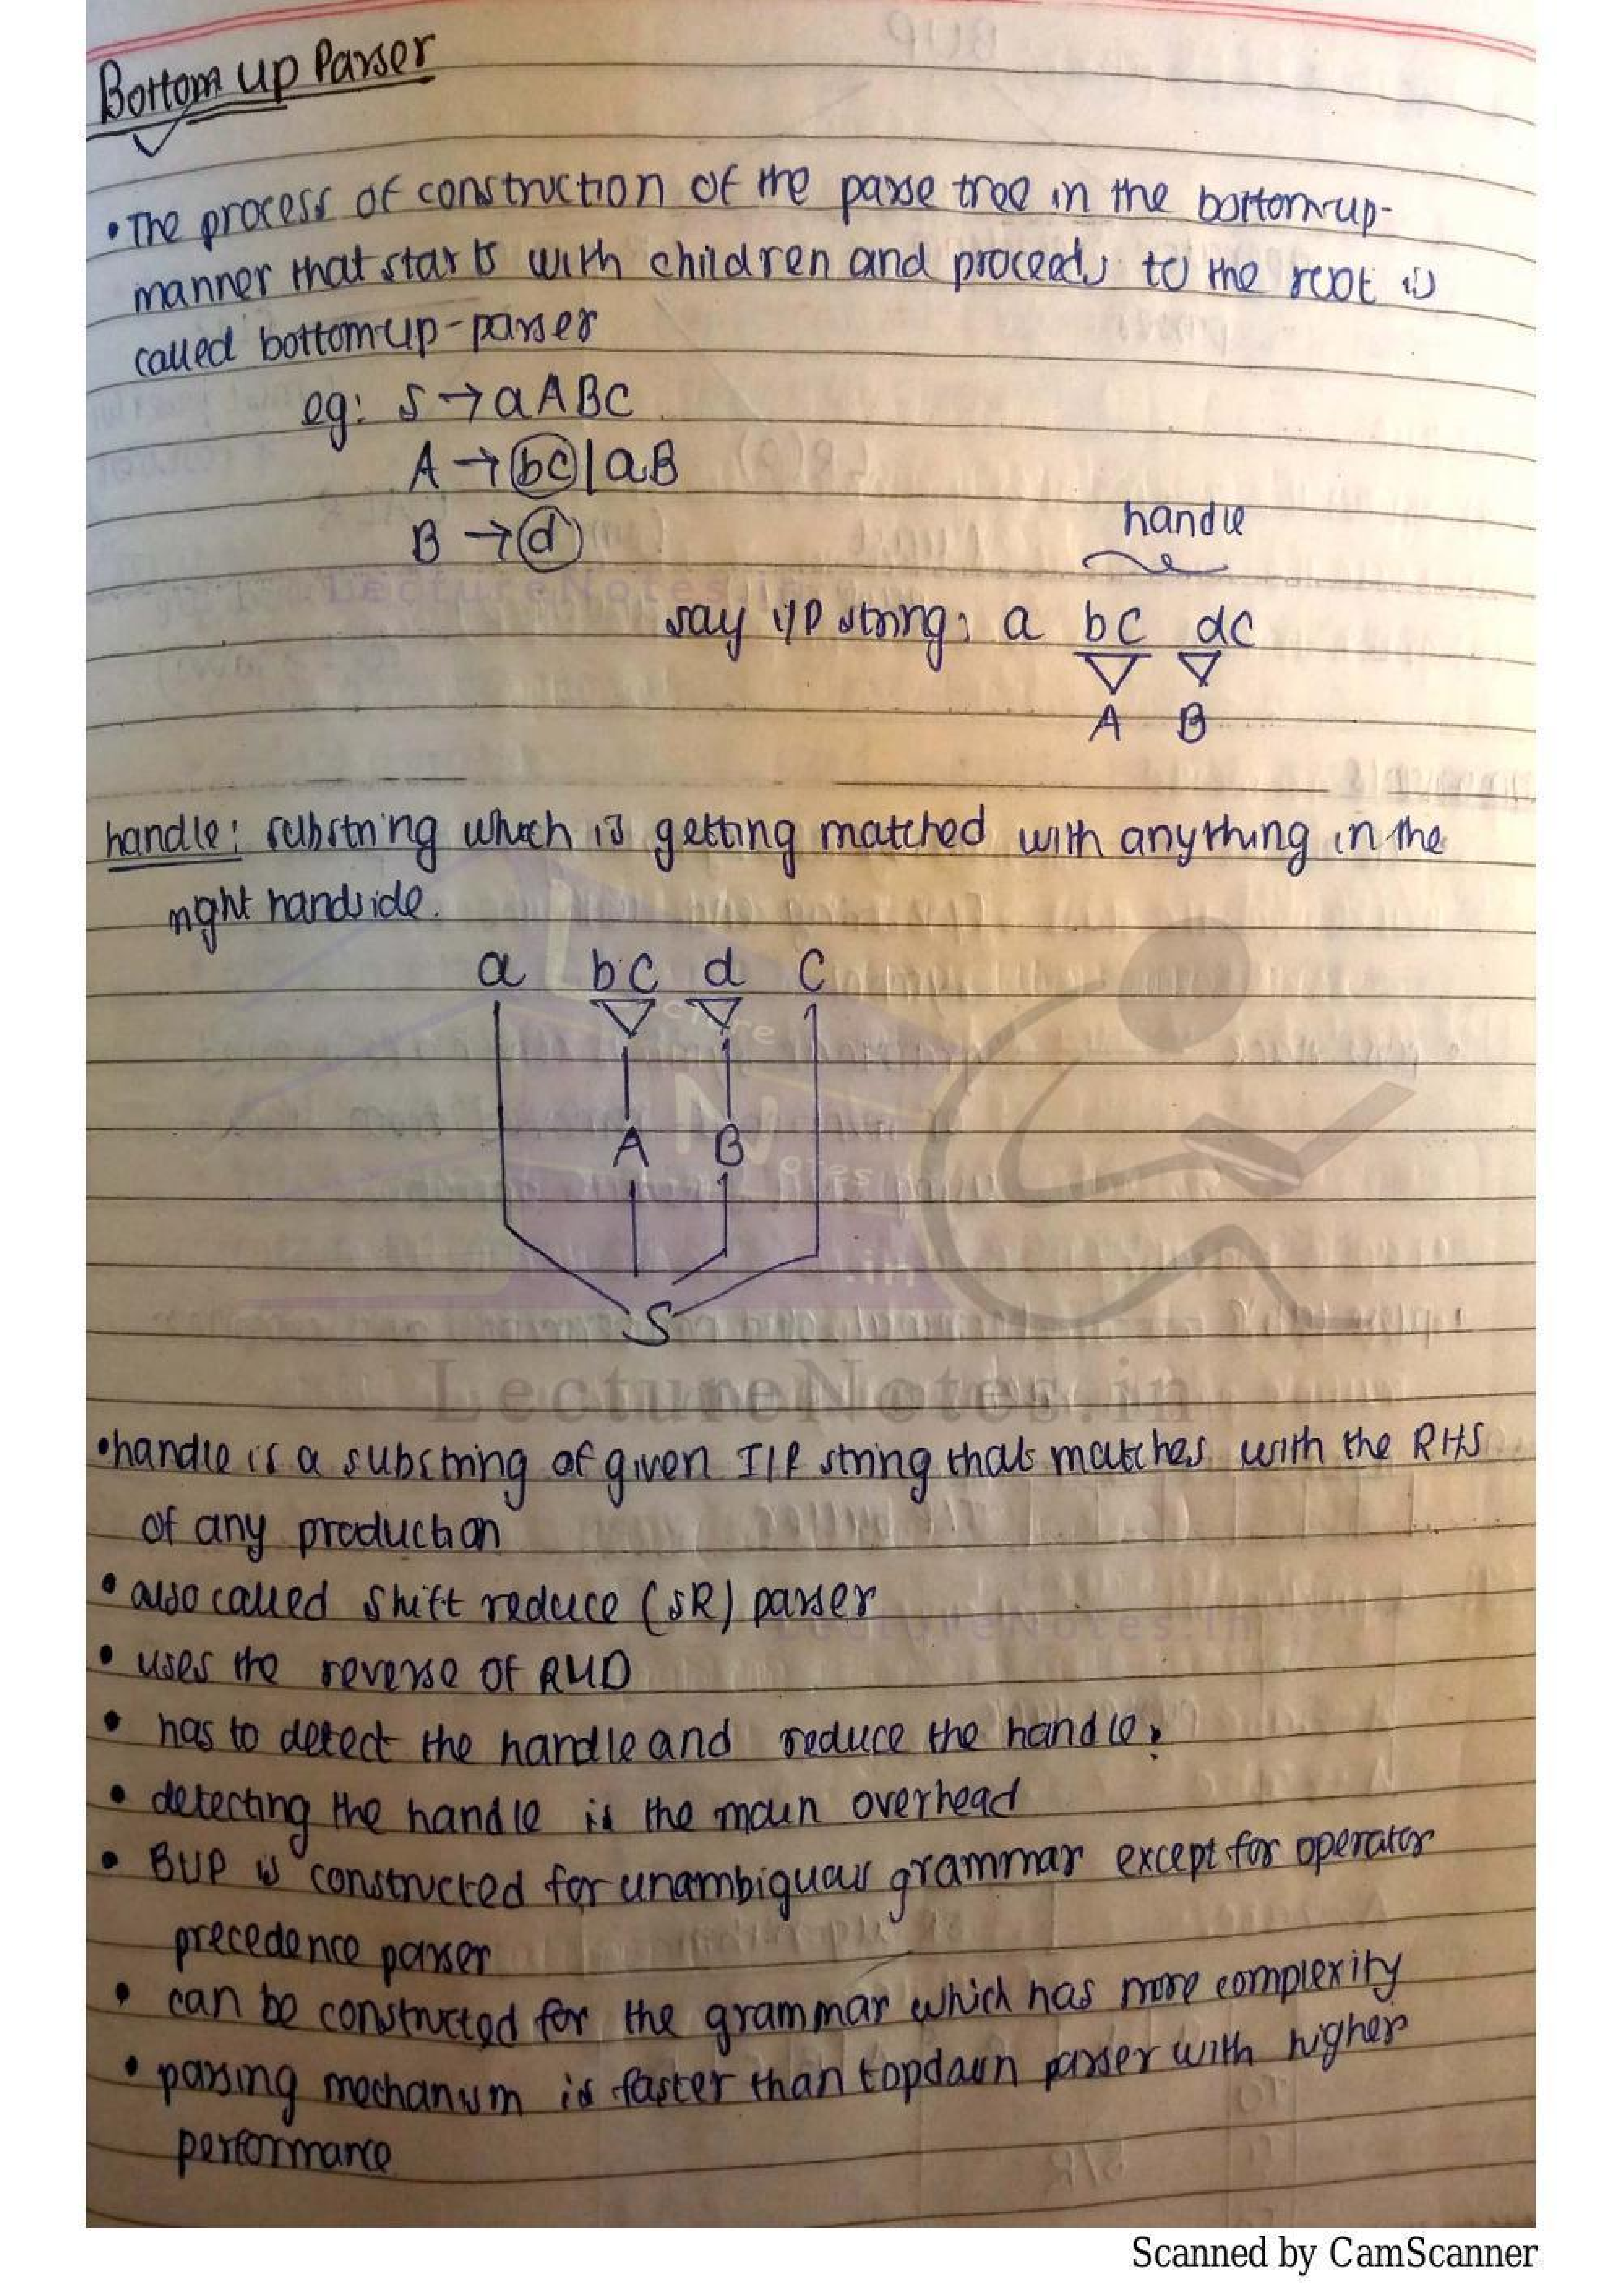 Bottom up Parser
• The process of construction of the parse tree in the bottom-up-
manner that starts with children and proceeds to the root is
called bottom-up-parser
eg: S → aABC
A → bc | aB
B → d
handle
say i/p string: a bc dc
A B
handle: substring which is getting matched with anything in the
right handside.
a bc d c
A B
S
LectureNotes.in
• handle is a substring of given I/P string that matches with the RHS
of any production
• also called shift reduce (SR) parser
• uses the reverse of RMD
• has to detect the handle and reduce the handle.
• detecting the handle is the main overhead
• BUP is constructed for unambiguous grammar except for operator
precedence parser
• can be constructed for the grammar which has more complexity
• parsing mechanism is faster than topdown parser with higher
performance
Scanned by CamScanner